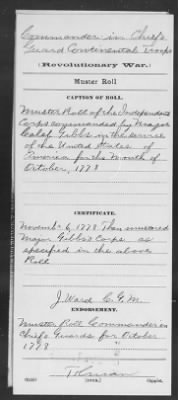 Commander in Chief's
Guard Continental Troops
(Revolutionary War.)
Muster Roll
CAPTION OF ROLL.
Muster Roll of the Independent
Corps commanded by Major
Caleb Gibbs in the service
of the United States of
America for the Month of
October, 1778
CERTIFICATE.
November 6, 1778 Then mustered
Major Gibbs's Corps as
specified in the above
Roll
J. Ward C.G.M.
ENDORSEMENT.
Muster Roll Commander in
Chief's Guards for October
1778